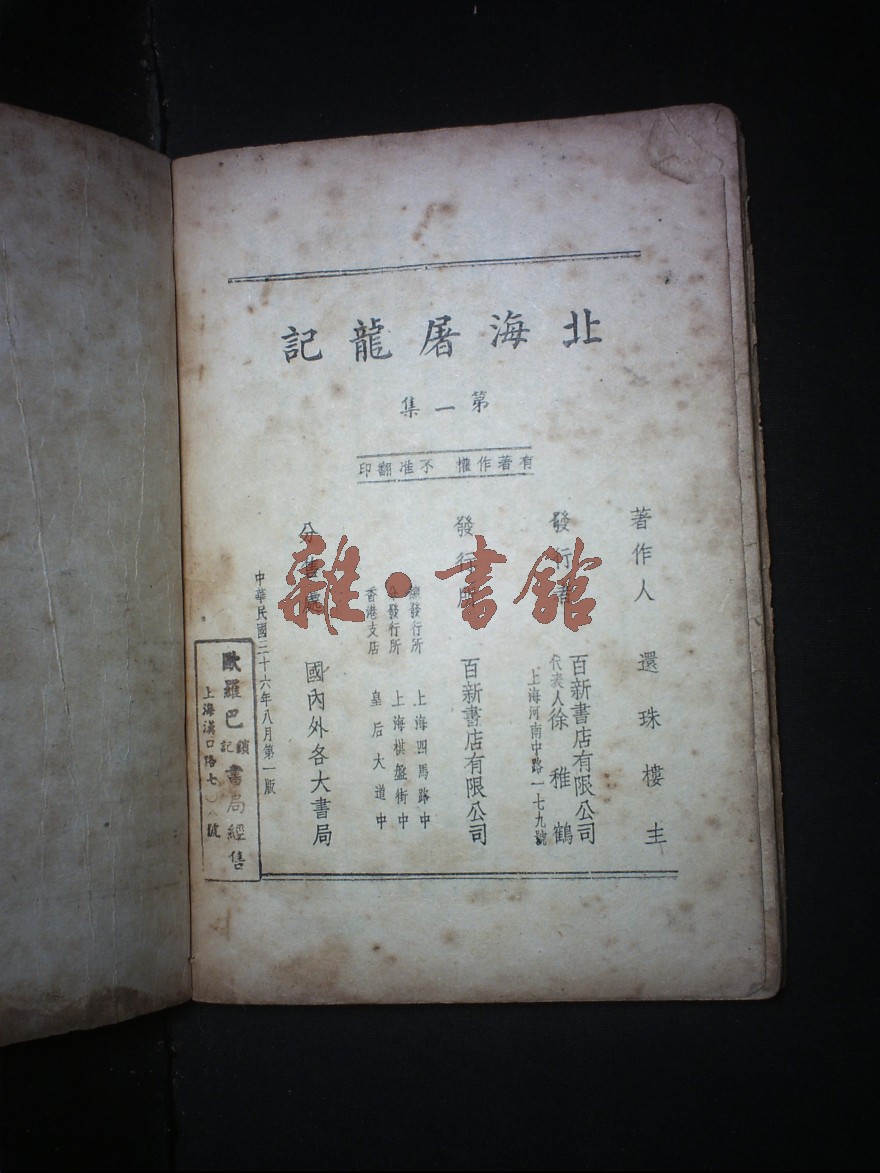 北海屠龍記
第一集
有著作權 不准翻印
著作人 還珠樓主
發行者 百新書店有限公司
代表人 徐稚鶴
上海河南中路一七九號
發行所 百新書店有限公司
總發行所 上海四馬路中
分發行所 上海棋盤街中
香港支店 皇后大道中
分售處 國內外各大書局
中華民國三十六年八月第一版
歐羅巴書局經售
鎖記
上海漢口路七〇八號
雜·書館